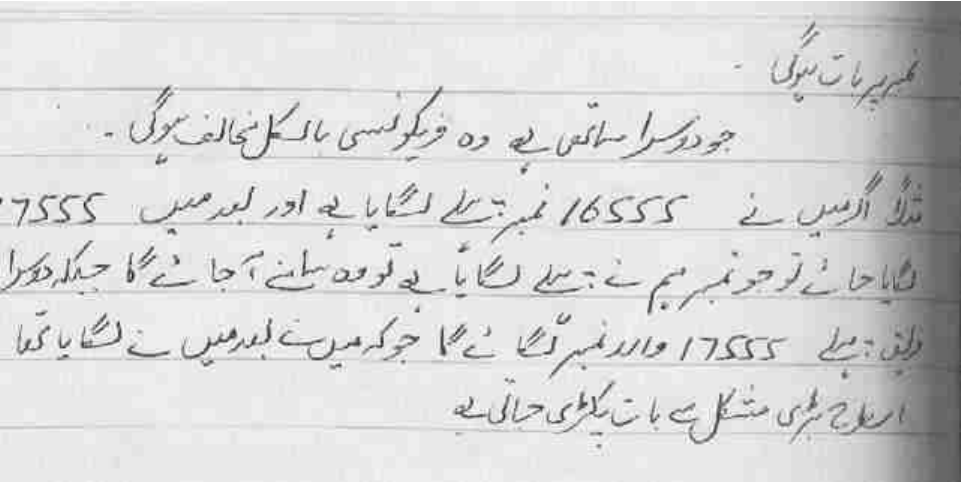 نمبر پر بات ہوگی ۔
جو دوسرا ساتھی ہے وہ فریکوئنسی بالکل مخالف ہوگی ۔
مثلاً اگر میں نے 16555 نمبر پہلے لگایا ہے اور بعد میں 7555
لگایا جائے تو جو نمبر ہم نے پہلے لگایا ہے تو وہ سامنے آ جائے گا جبکہ دوسرا
فریق پہلے 17555 والا نمبر لگائے گا جو کہ میں نے بعد میں نے لگایا تھا
اسطرح بڑی مشکل سے بات پکڑی جاتی ہے